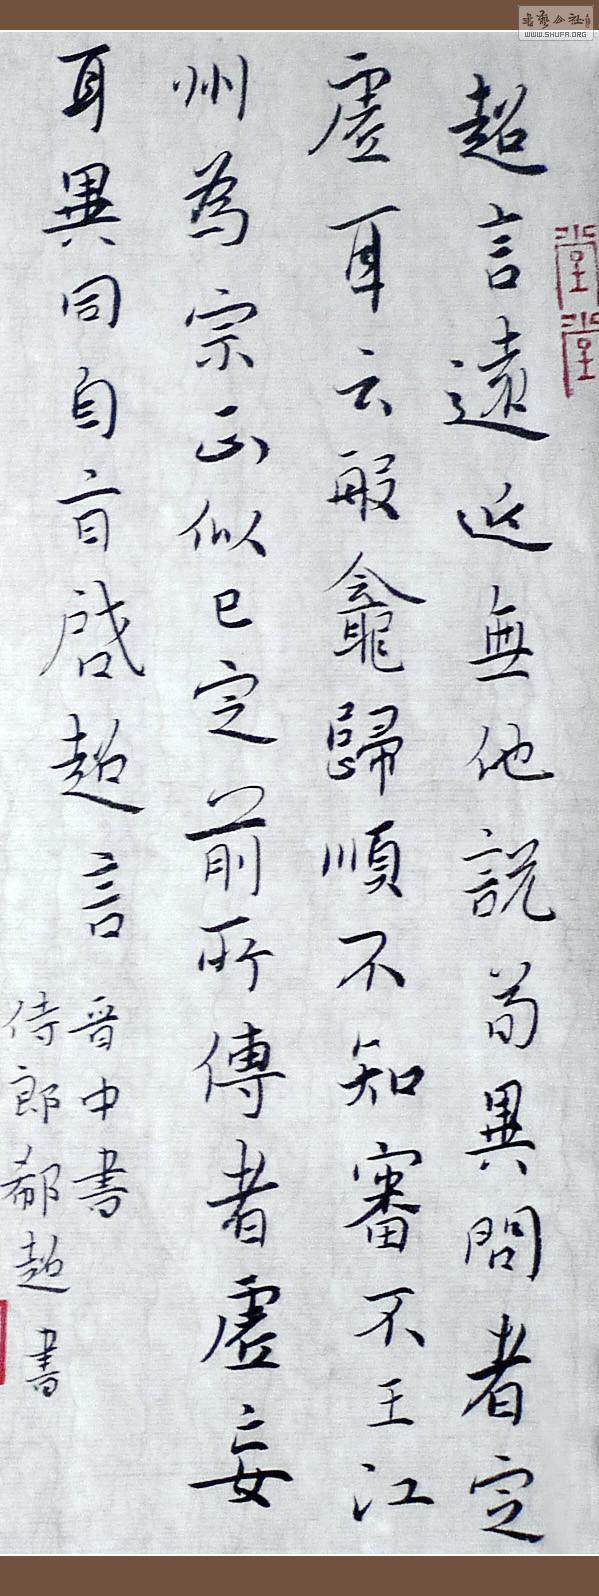 超言遠近無他説苟異問者定
虛耳云般龕歸順不知審不王江
州為宗正似已定前所傳者虛妄
耳異同自旨啟超言
晋中書
侍郎郗超書
WWW.SHUFA.ORG